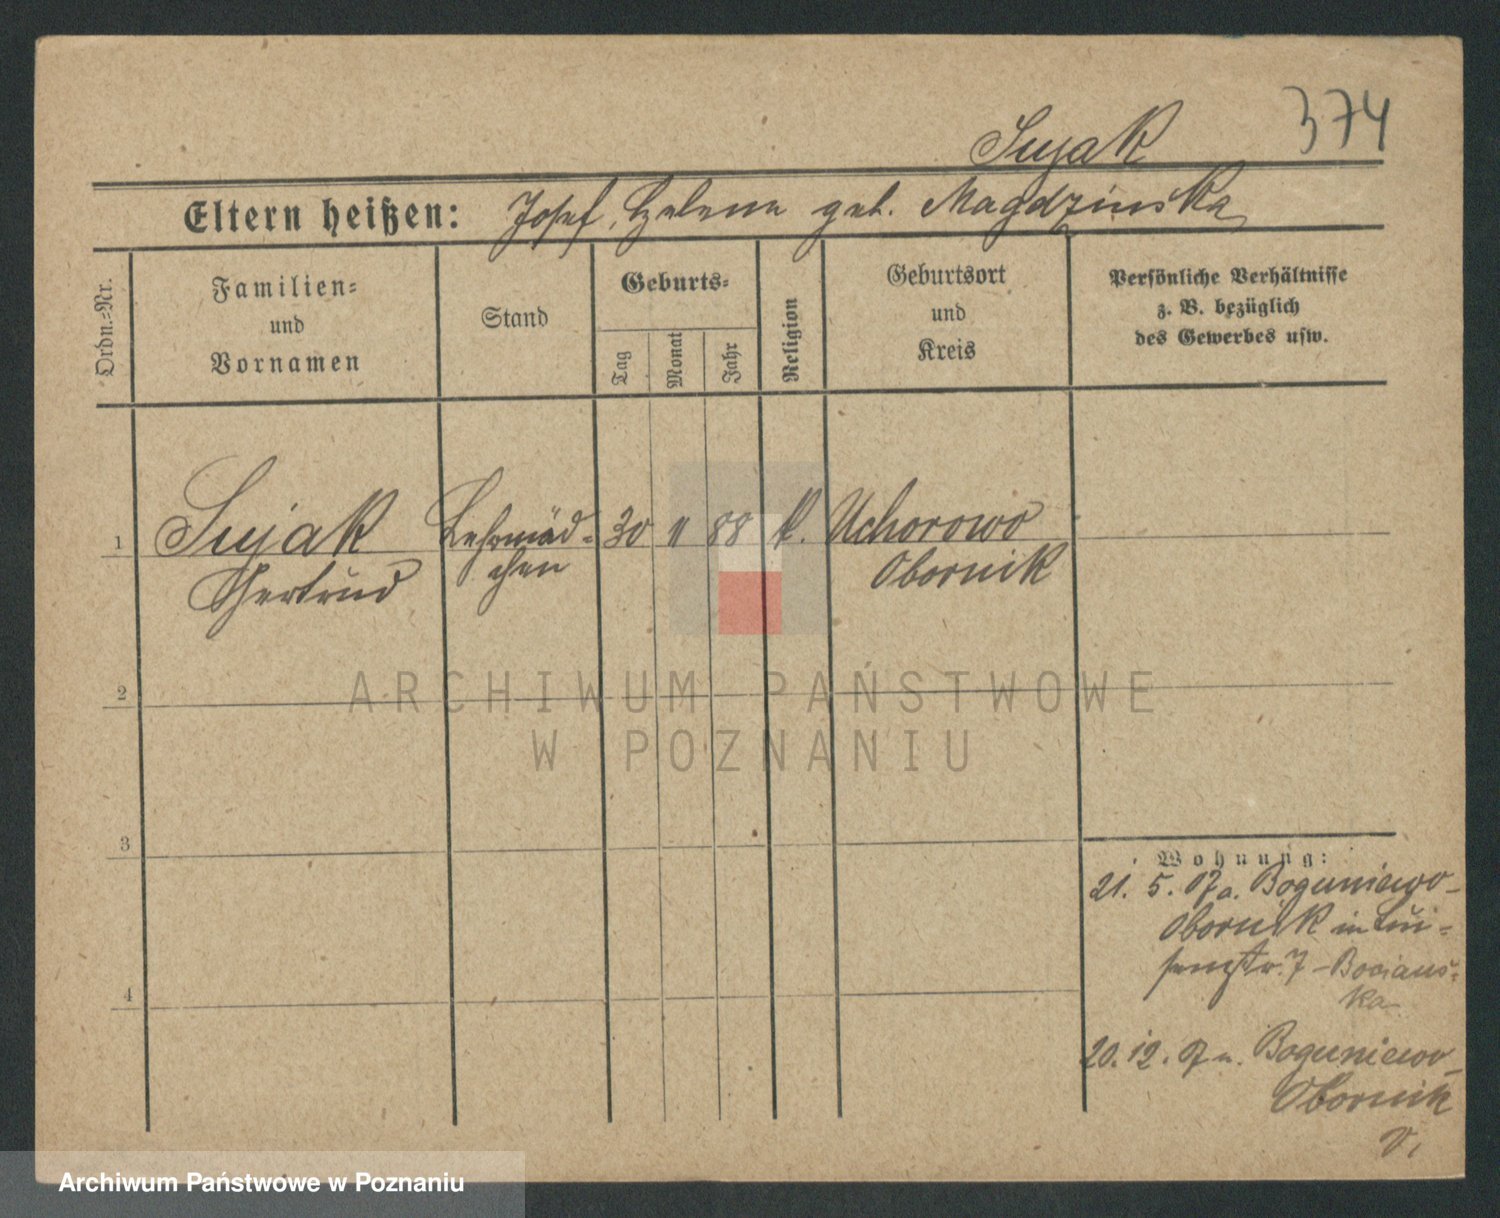 374
Sujak
Eltern heißen: Josef, Helene geb. Magdzinska
Ordn.-Nr.
Familien-
und
Vornamen
Stand
Geburts-
Tag
Monat
Jahr
Religion
Geburtsort
und
Kreis
Persönliche Verhältnisse
z. B. bezüglich
des Gewerbes usw.
1 Sujak Lehrmäd- 30 11 88 k. Uchorowo
Gertrud chen Obornik
2
3
4
ARCHIWUM PAŃSTWOWE
W POZNANIU
Wohnung:
21. 5. 07 a. Boguniewo-
Obornik in Lui-
senstr. 7 - Bocians-
ka
20. 12. 07 n. Boguniewo-
Obornik
Archiwum Państwowe w Poznaniu